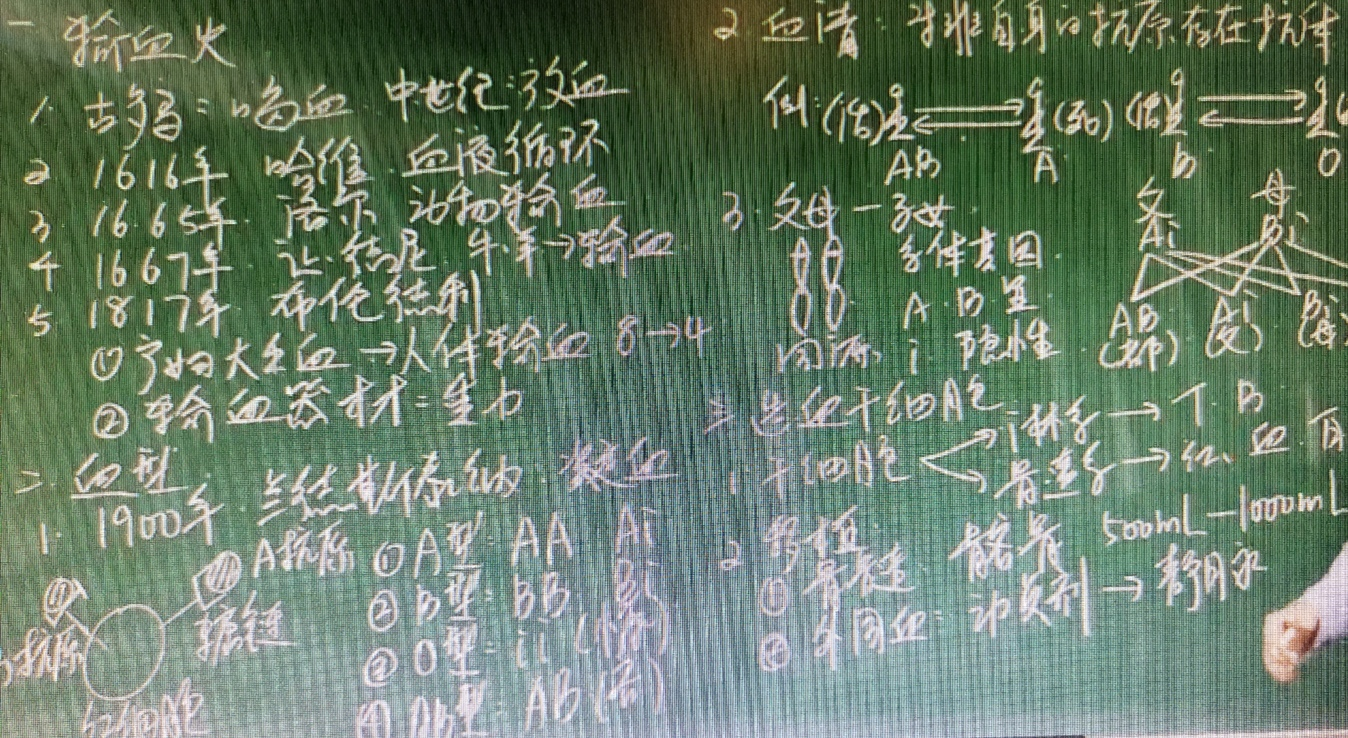 一 输血史
1. 古罗马:喝血 中世纪:放血
2 1616年 哈维 血液循环
3. 1665年 洛尔 动物输血
4 1667年 让·德尼 牛.羊→输血
5. 1817年 布伦德利
① 产妇大出血→人体输血 8→4
② 输血器材:重力
二. 血型
1. 1900年 兰德斯泰纳 凝血
A抗原
糖链
抗原
红细胞
① A型: AA Ai
② B型: BB Bi
③ O型: ii
④ AB型: AB
2. 血清:非自身的抗原存在抗体
例:(活) (死) (活)
AB A B O
3. 父母—子女
等位基因
A.B显
同源 i 隐性
父 母
Ai Bi
AB Ai Bi
三 造血干细胞
1. 干细胞 淋系→T.B
骨
2. 移植
① 骨髓 髂骨 500mL-1000mL
② 外周血:动员剂→静脉